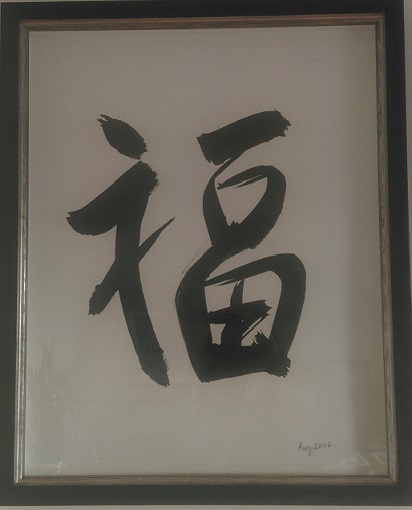 福
Aug 2007